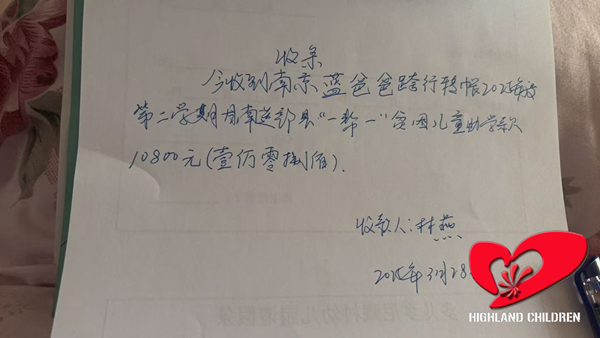 收条
今收到南京蓝爸爸跨行转帐
第二学期甘南迭部县“一帮一”贫困儿童助学款
10800元(壹万零捌佰).
收款人:林燕
年3月28
HIGHLAND CHILDREN